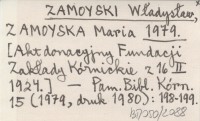 ZAMOYSKI Władysław,
ZAMOYSKA Maria 1979.
[Akt donacyjny Fundacji
Zakłady Kórnickie z 16 II
1924.] — Pam. Bibl. Kórn.
15 (1979, druk 1980): 198-199.